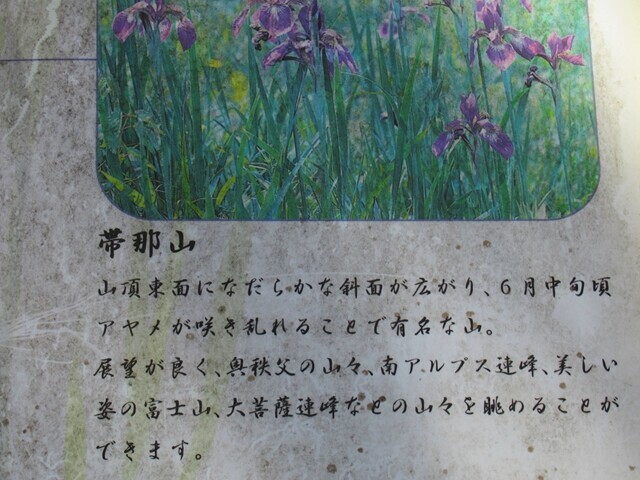 帯那山
山頂東面になだらかな斜面が広がり、6月中旬頃
アヤメが咲き乱れることで有名な山。
展望が良く、奥秩父の山々、南アルプス連峰、美しい
姿の富士山、大菩薩連峰などの山々を眺めることが
できます。